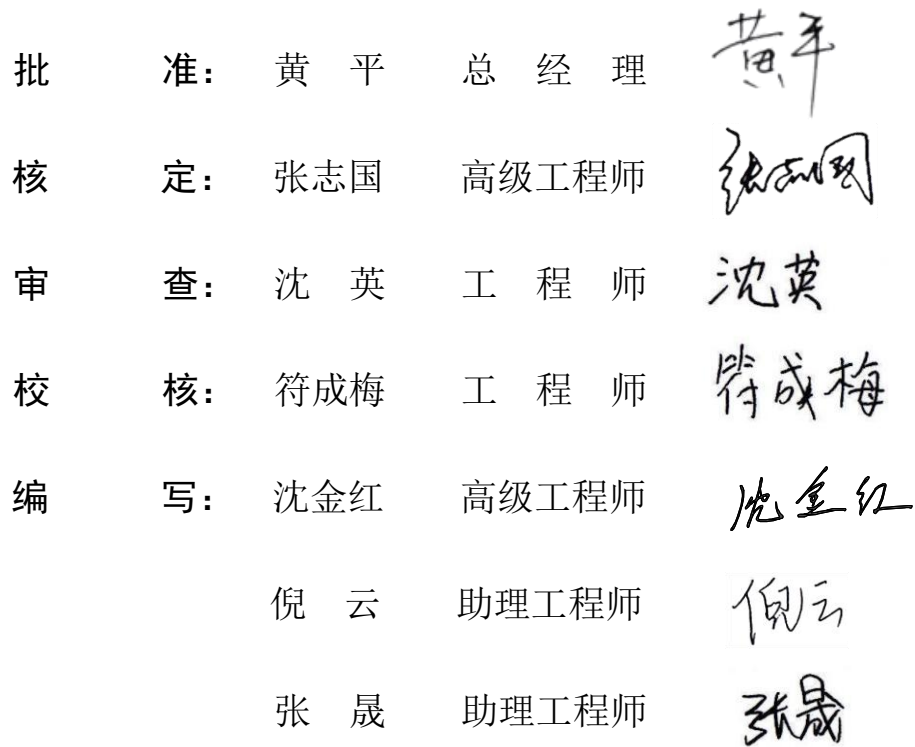 批 准： 黄 平 总 经 理 黄平
核 定： 张志国 高级工程师 张志国
审 查： 沈 英 工 程 师 沈英
校 核： 符成梅 工 程 师 符成梅
编 写： 沈金红 高级工程师 沈金红
倪 云 助理工程师 倪云
张 晟 助理工程师 张晟